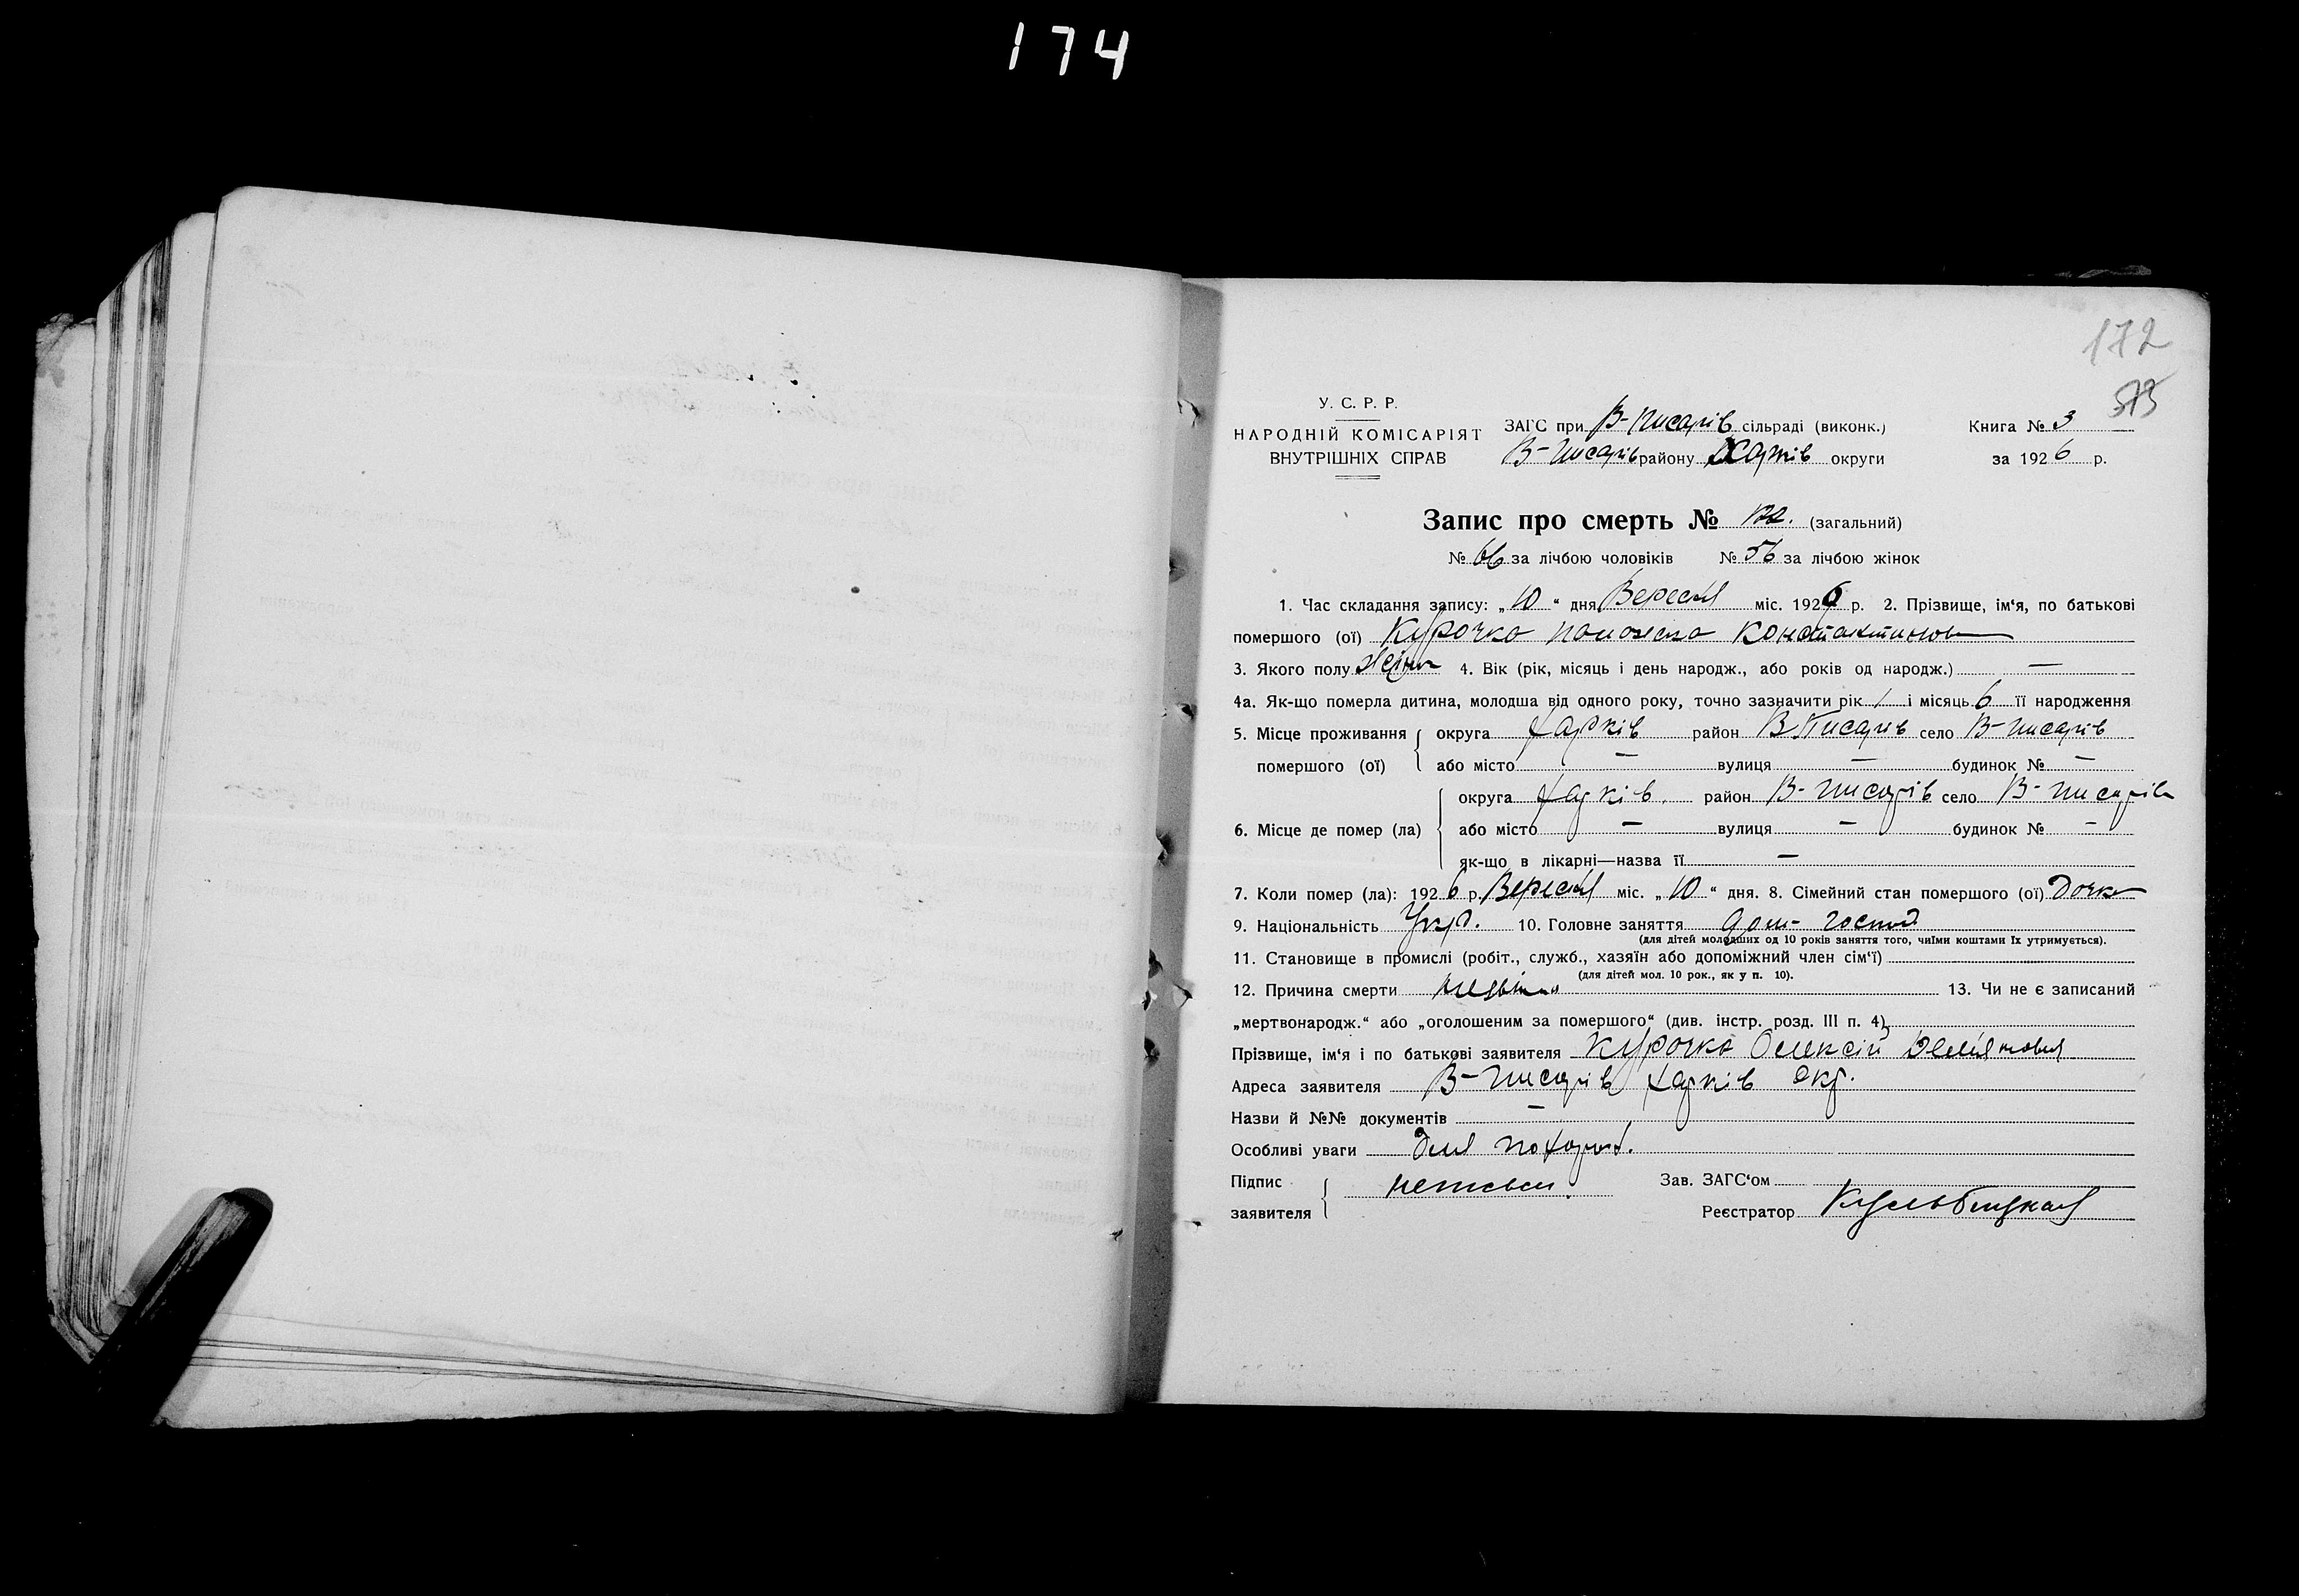 174
172
У. С. Р. Р.
НАРОДНІЙ КОМІСАРІЯТ
ВНУТРІШНІХ СПРАВ
ЗАГС при В-Писарів сільраді (виконк.)
В-Писарів району Харків округи
Книга № 3
за 1926 р.
Запис про смерть № 122. (загальний)
№ 66 за лічбою чоловіків № 56 за лічбою жінок
1. Час складання запису: „10“ дня Вересня міс. 1926 р. 2. Прізвище, ім‘я, по батькові
помершого (ої) Курочка Константинов
3. Якого полу жіноч 4. Вік (рік, місяць і день народж., або років од народж.) —
4а. Як-що померла дитина, молодша від одного року, точно зазначити рік / і місяць 6 її народження
5. Місце проживання округа Харків район В Писарів село В-Писарів
помершого (ої) або місто — вулиця — будинок № —
округа Харків. район В-Писарів село В-Писарів
6. Місце де помер (ла) або місто — вулиця — будинок № —
як-що в лікарні—назва її —
7. Коли помер (ла): 1926 р. Вересня міс. „10“ дня. 8. Сімейний стан помершого (ої) Дочка
9. Національність Укр. 10. Головне заняття дом- госпо
(для дітей молодших од 10 років заняття того, чиїми коштами їх утримується).
11. Становище в промислі (робіт., служб., хазяїн або допоміжний член сім‘ї)
(для дітей мол. 10 рок., як у п. 10).
12. Причина смерти 13. Чи не є записаний
„мертвонародж.“ або „оголошеним за помершого“ (див. інстр. розд. III п. 4)
Прізвище, ім‘я і по батькові заявителя Курочка Олексій
Адреса заявителя В-Писарів Харків окр.
Назви й №№ документів —
Особливі уваги для похорон.
Підпис
заявителя
Зав. ЗАГС‘ом
Реєстратор